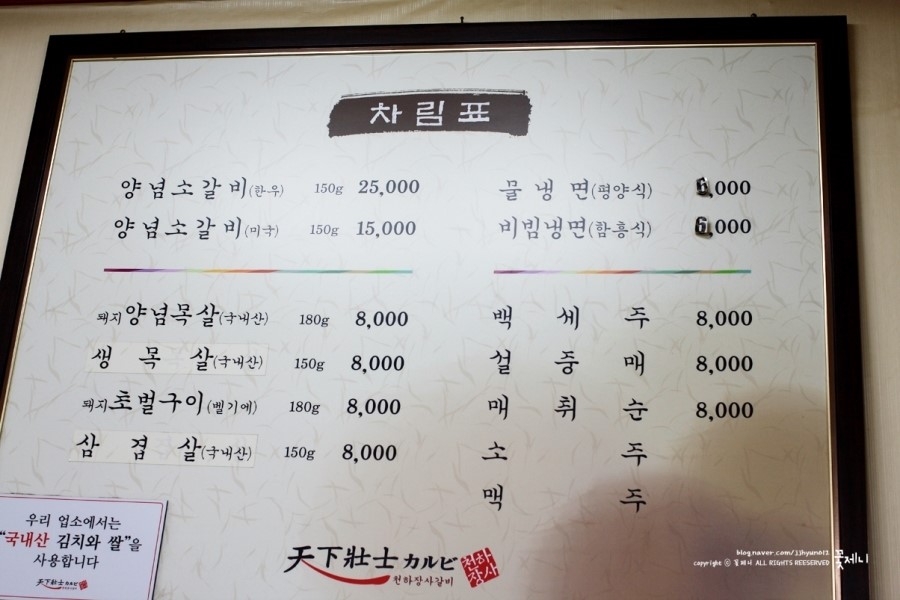 차림표
양념소갈비(한우) 150g 25,000
양념소갈비(미국) 150g 15,000
돼지양념목살(국내산) 180g 8,000
생목살(국내산) 150g 8,000
돼지초벌구이(벨기에) 180g 8,000
삼겹살(국내산) 150g 8,000
물냉면(평양식) 6,000
비빔냉면(함흥식) 6,000
백세주 8,000
설중매 8,000
매취순 8,000
소주
맥주
우리 업소에서는
"국내산 김치와 쌀"을
사용합니다
天下壯士カルビ
천하장사갈비
천하장사
blog.naver.com/jjhyun012
copyright ⓒ 꽃제니 ALL RIGHTS REESERVED 꽃제니